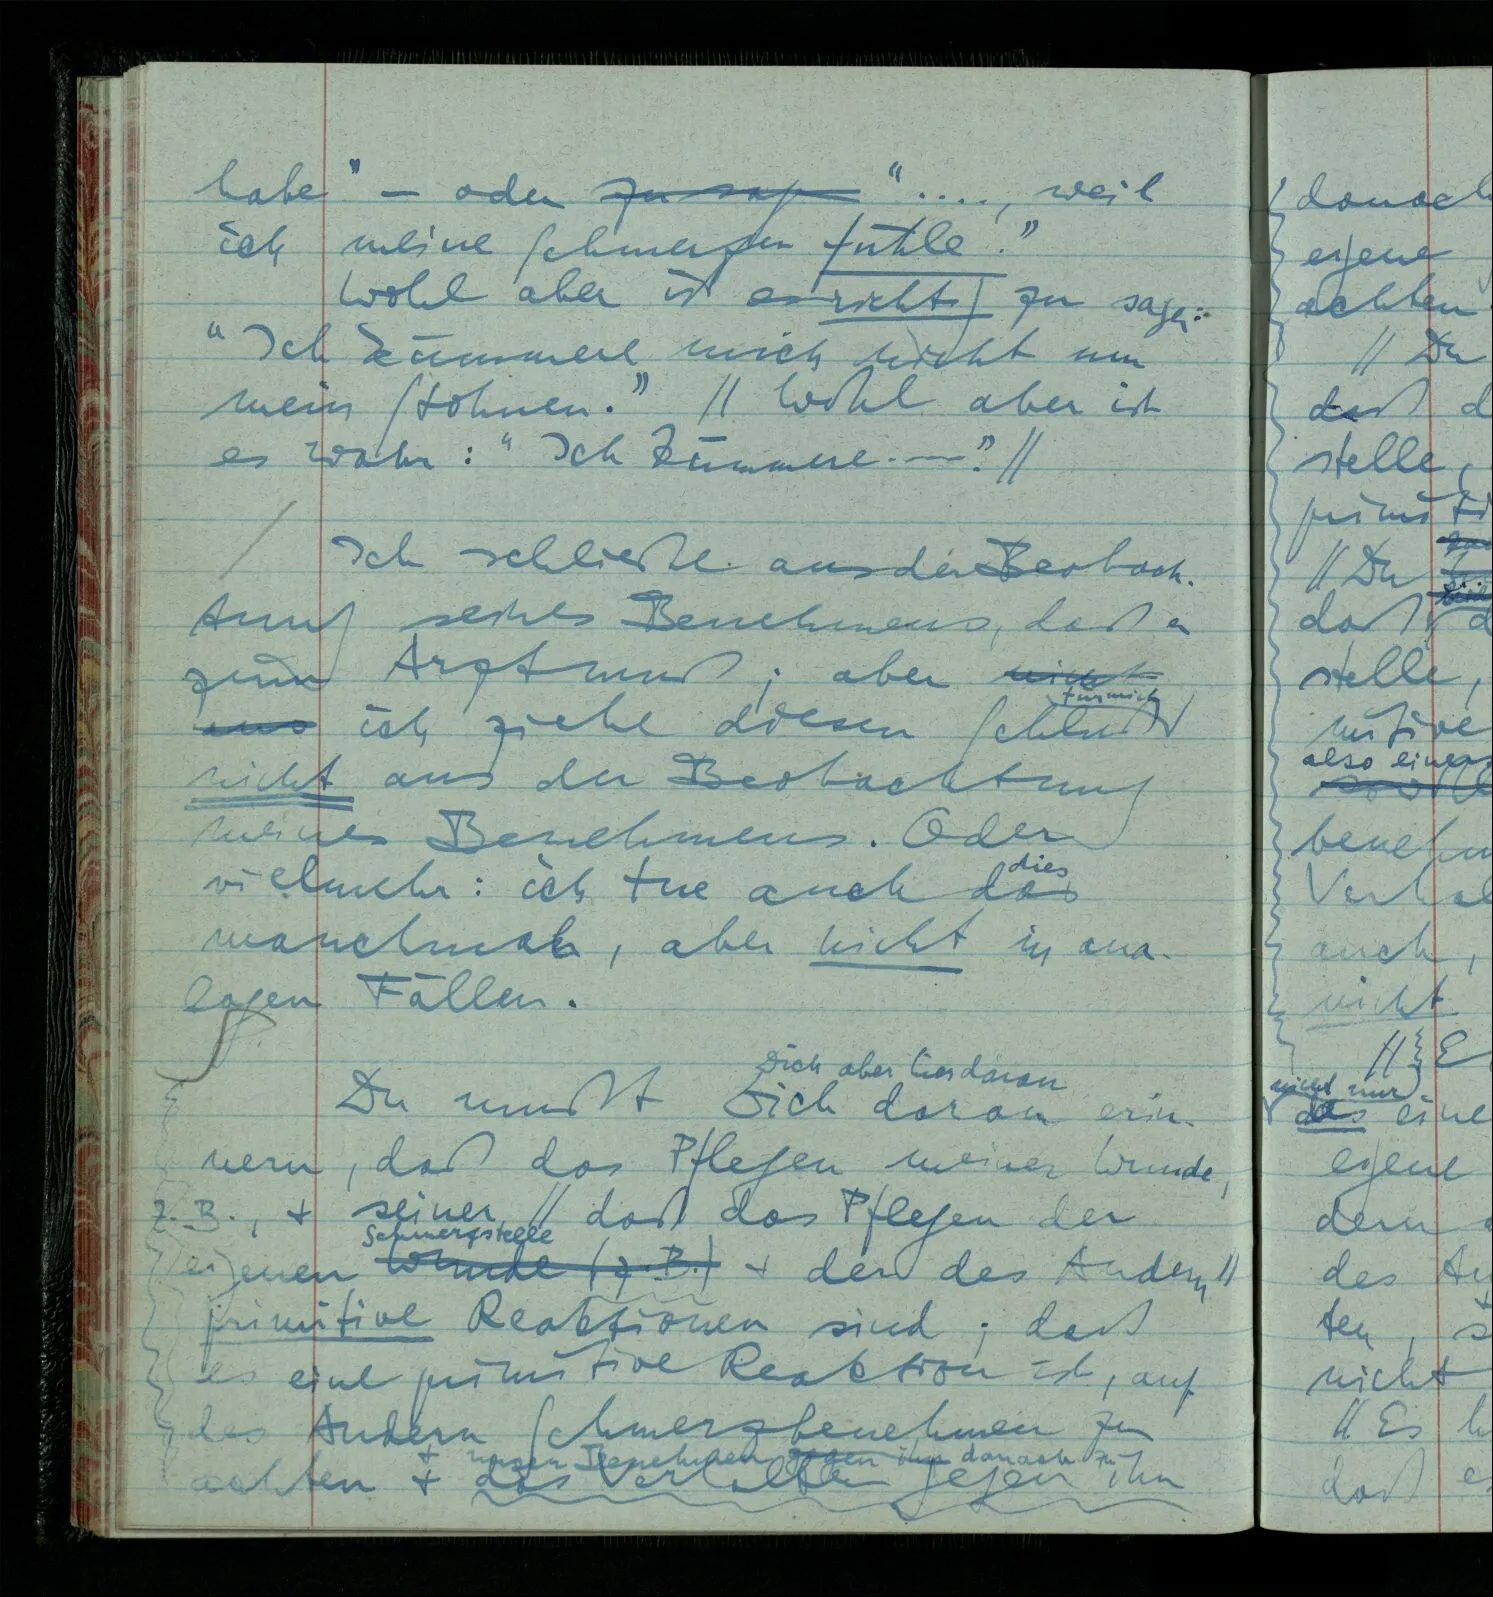 habe” – oder zu sagen “...., weil
ich meine Schmerzen fühle.”
Wohl aber ist es richtig zu sagen:
“Ich kümmere mich nicht um
mein Stöhnen.” // Wohl aber ist
es wahr: “Ich kümmere.—” //
/ Ich schließe aus der Beobach-
tung seines Benehmens, daß er
zum Arzt muß; aber nicht
für mich
aus ich ziehe diesen Schluß
nicht aus der Beobachtung
meines Benehmens. Oder
dies
vielmehr: ich tue auch das
manchmal, aber nicht in ana-
logen Fällen.
Dich aber hier daran
Du mußt Dich daran erin-
nern, daß das Pflegen meiner Wunde,
z.B., + seiner // daß das Pflegen der
Schmerzstelle
eigenen Wunde (z.B.) + der des Andern //
primitive Reaktionen sind; daß
es eine primitive Reaktion ist, auf
des Andern Schmerzbenehmen zu
+ unser Benehmen gegen ihn danach zu
achten + das Verhalten gegen ihn
danach
eigene
achten
// Du
daß d
stelle,
primiti
// Du
daß d
stelle,
mitive
also einer
benehm
Verhal
auch,
nicht
// E
nicht nur
das eine
eigene
dern
des An
ten, s
nicht
// Es h
daß es